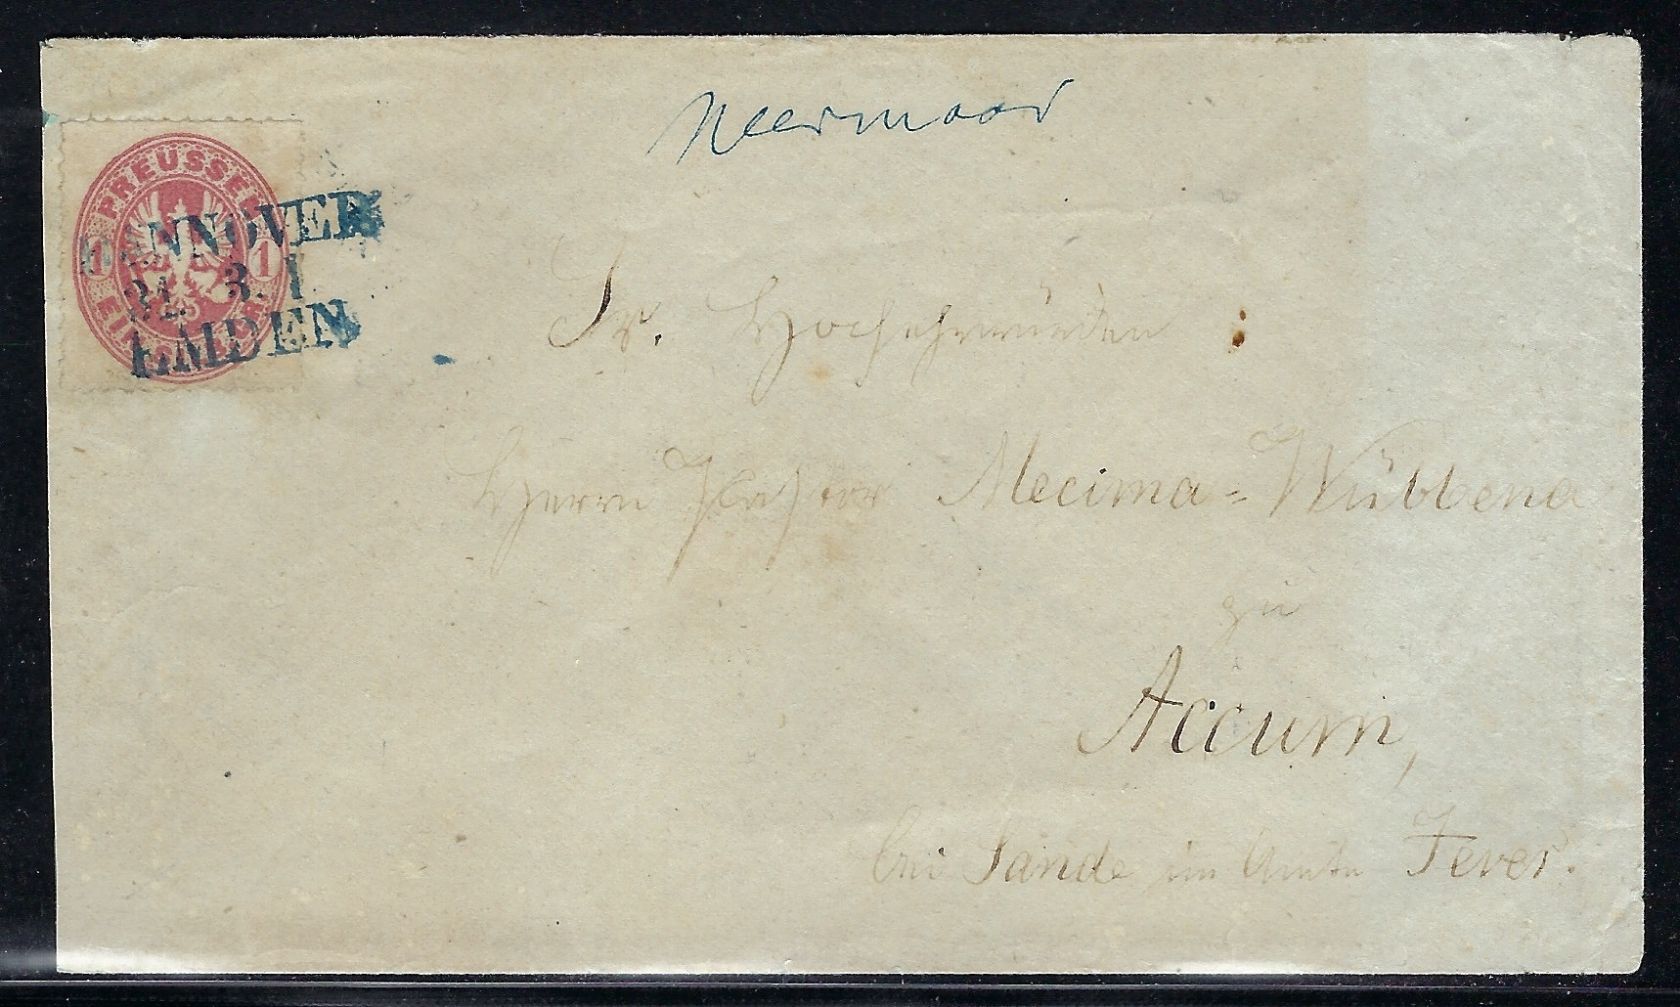 Neermoor
PREUSSEN
1 1
EIN
HANNOVER
31. 3. I
EMDEN
Sr. Hochehrwürden
Herrn Pastor Mecima=Wübbena
zu
Accum,
bei Sande im Amte Jever.